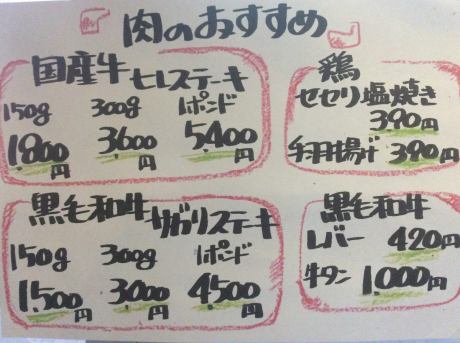 肉のおすすめ
国産牛ヒレステーキ
150g 300g 1ポンド
1,800円 3,600円 5,400円
鶏
セセリ塩焼き
390円
手羽揚げ 390円
黒毛和牛サガリステーキ
150g 300g 1ポンド
1,500円 3,000円 4,500円
黒毛和牛
レバー 420円
牛タン 1,000円